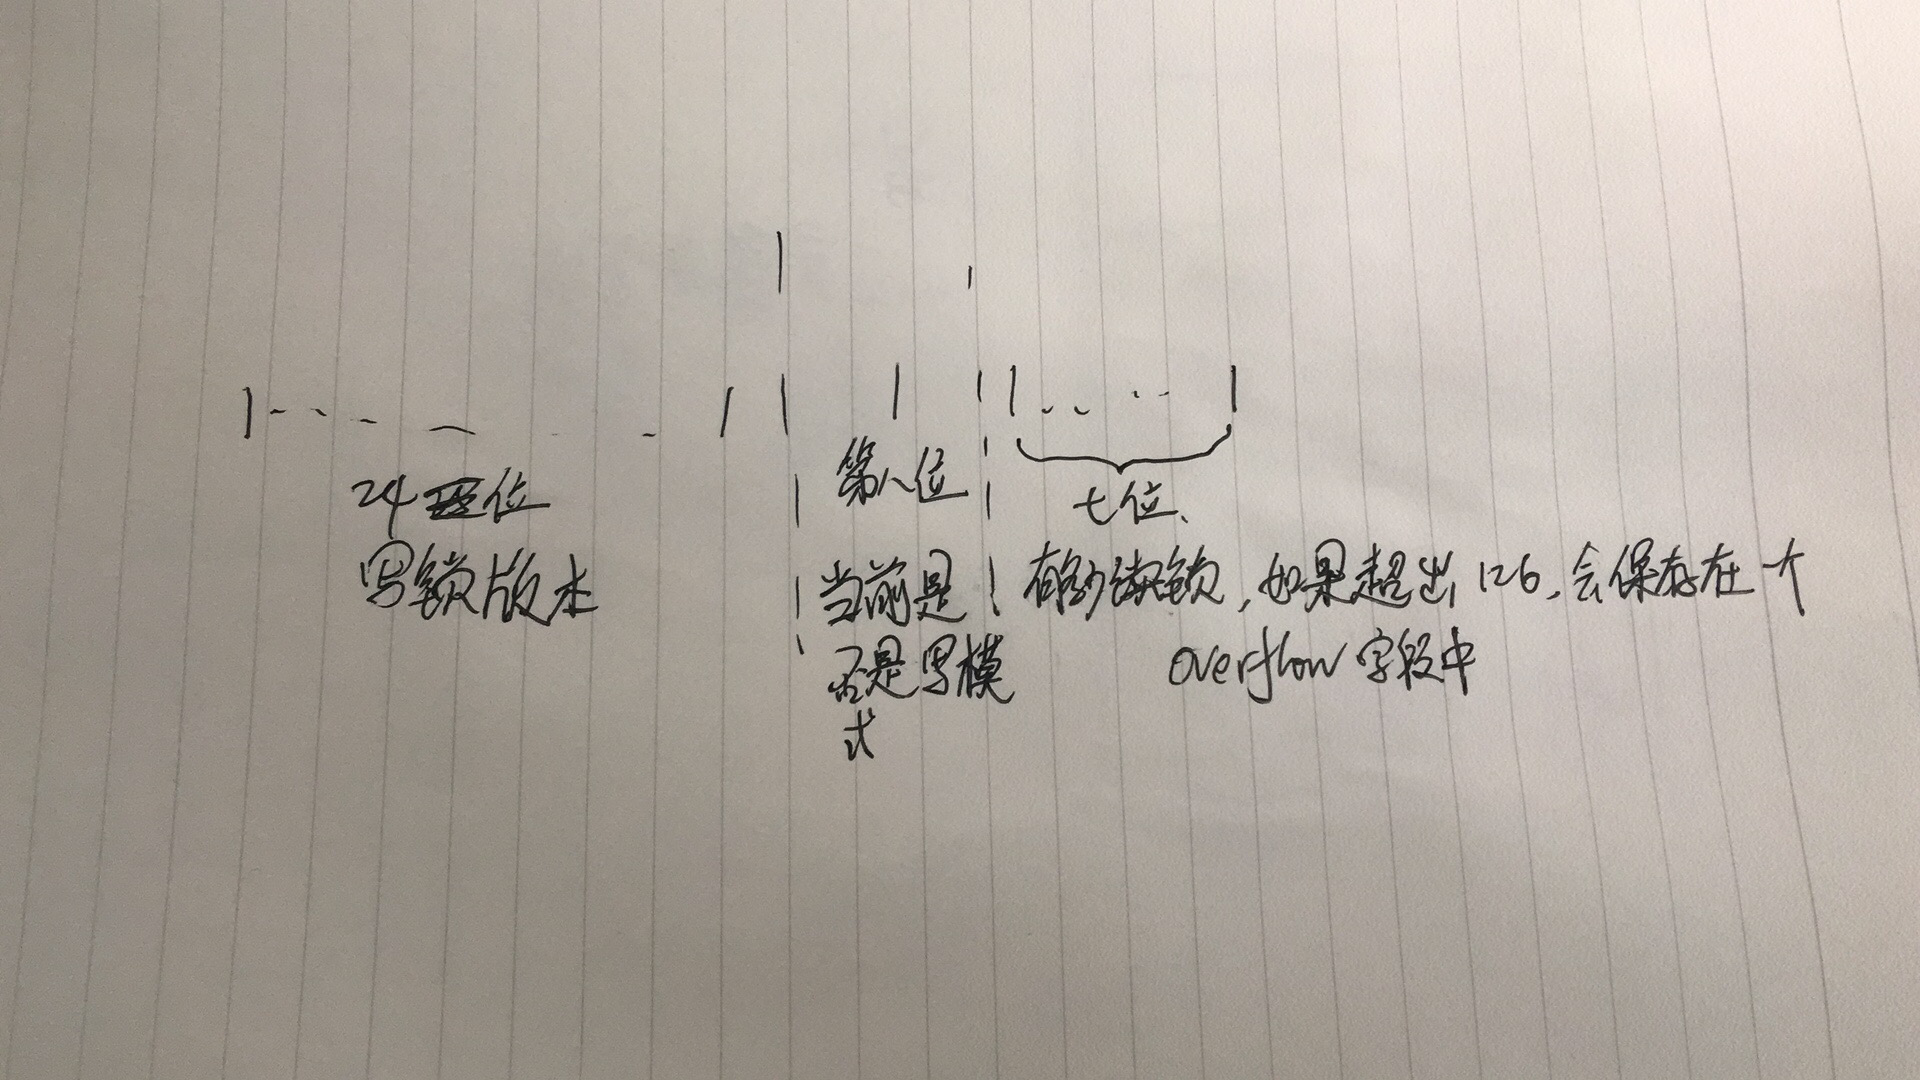 24位
写锁版本
第八位
当前是
否是写模
式
七位、
有多少读锁,如果超出126,会保存在一个
overflow字段中